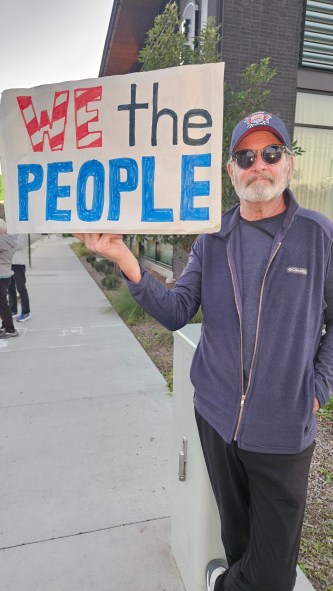 WE the
PEOPLE
Columbia